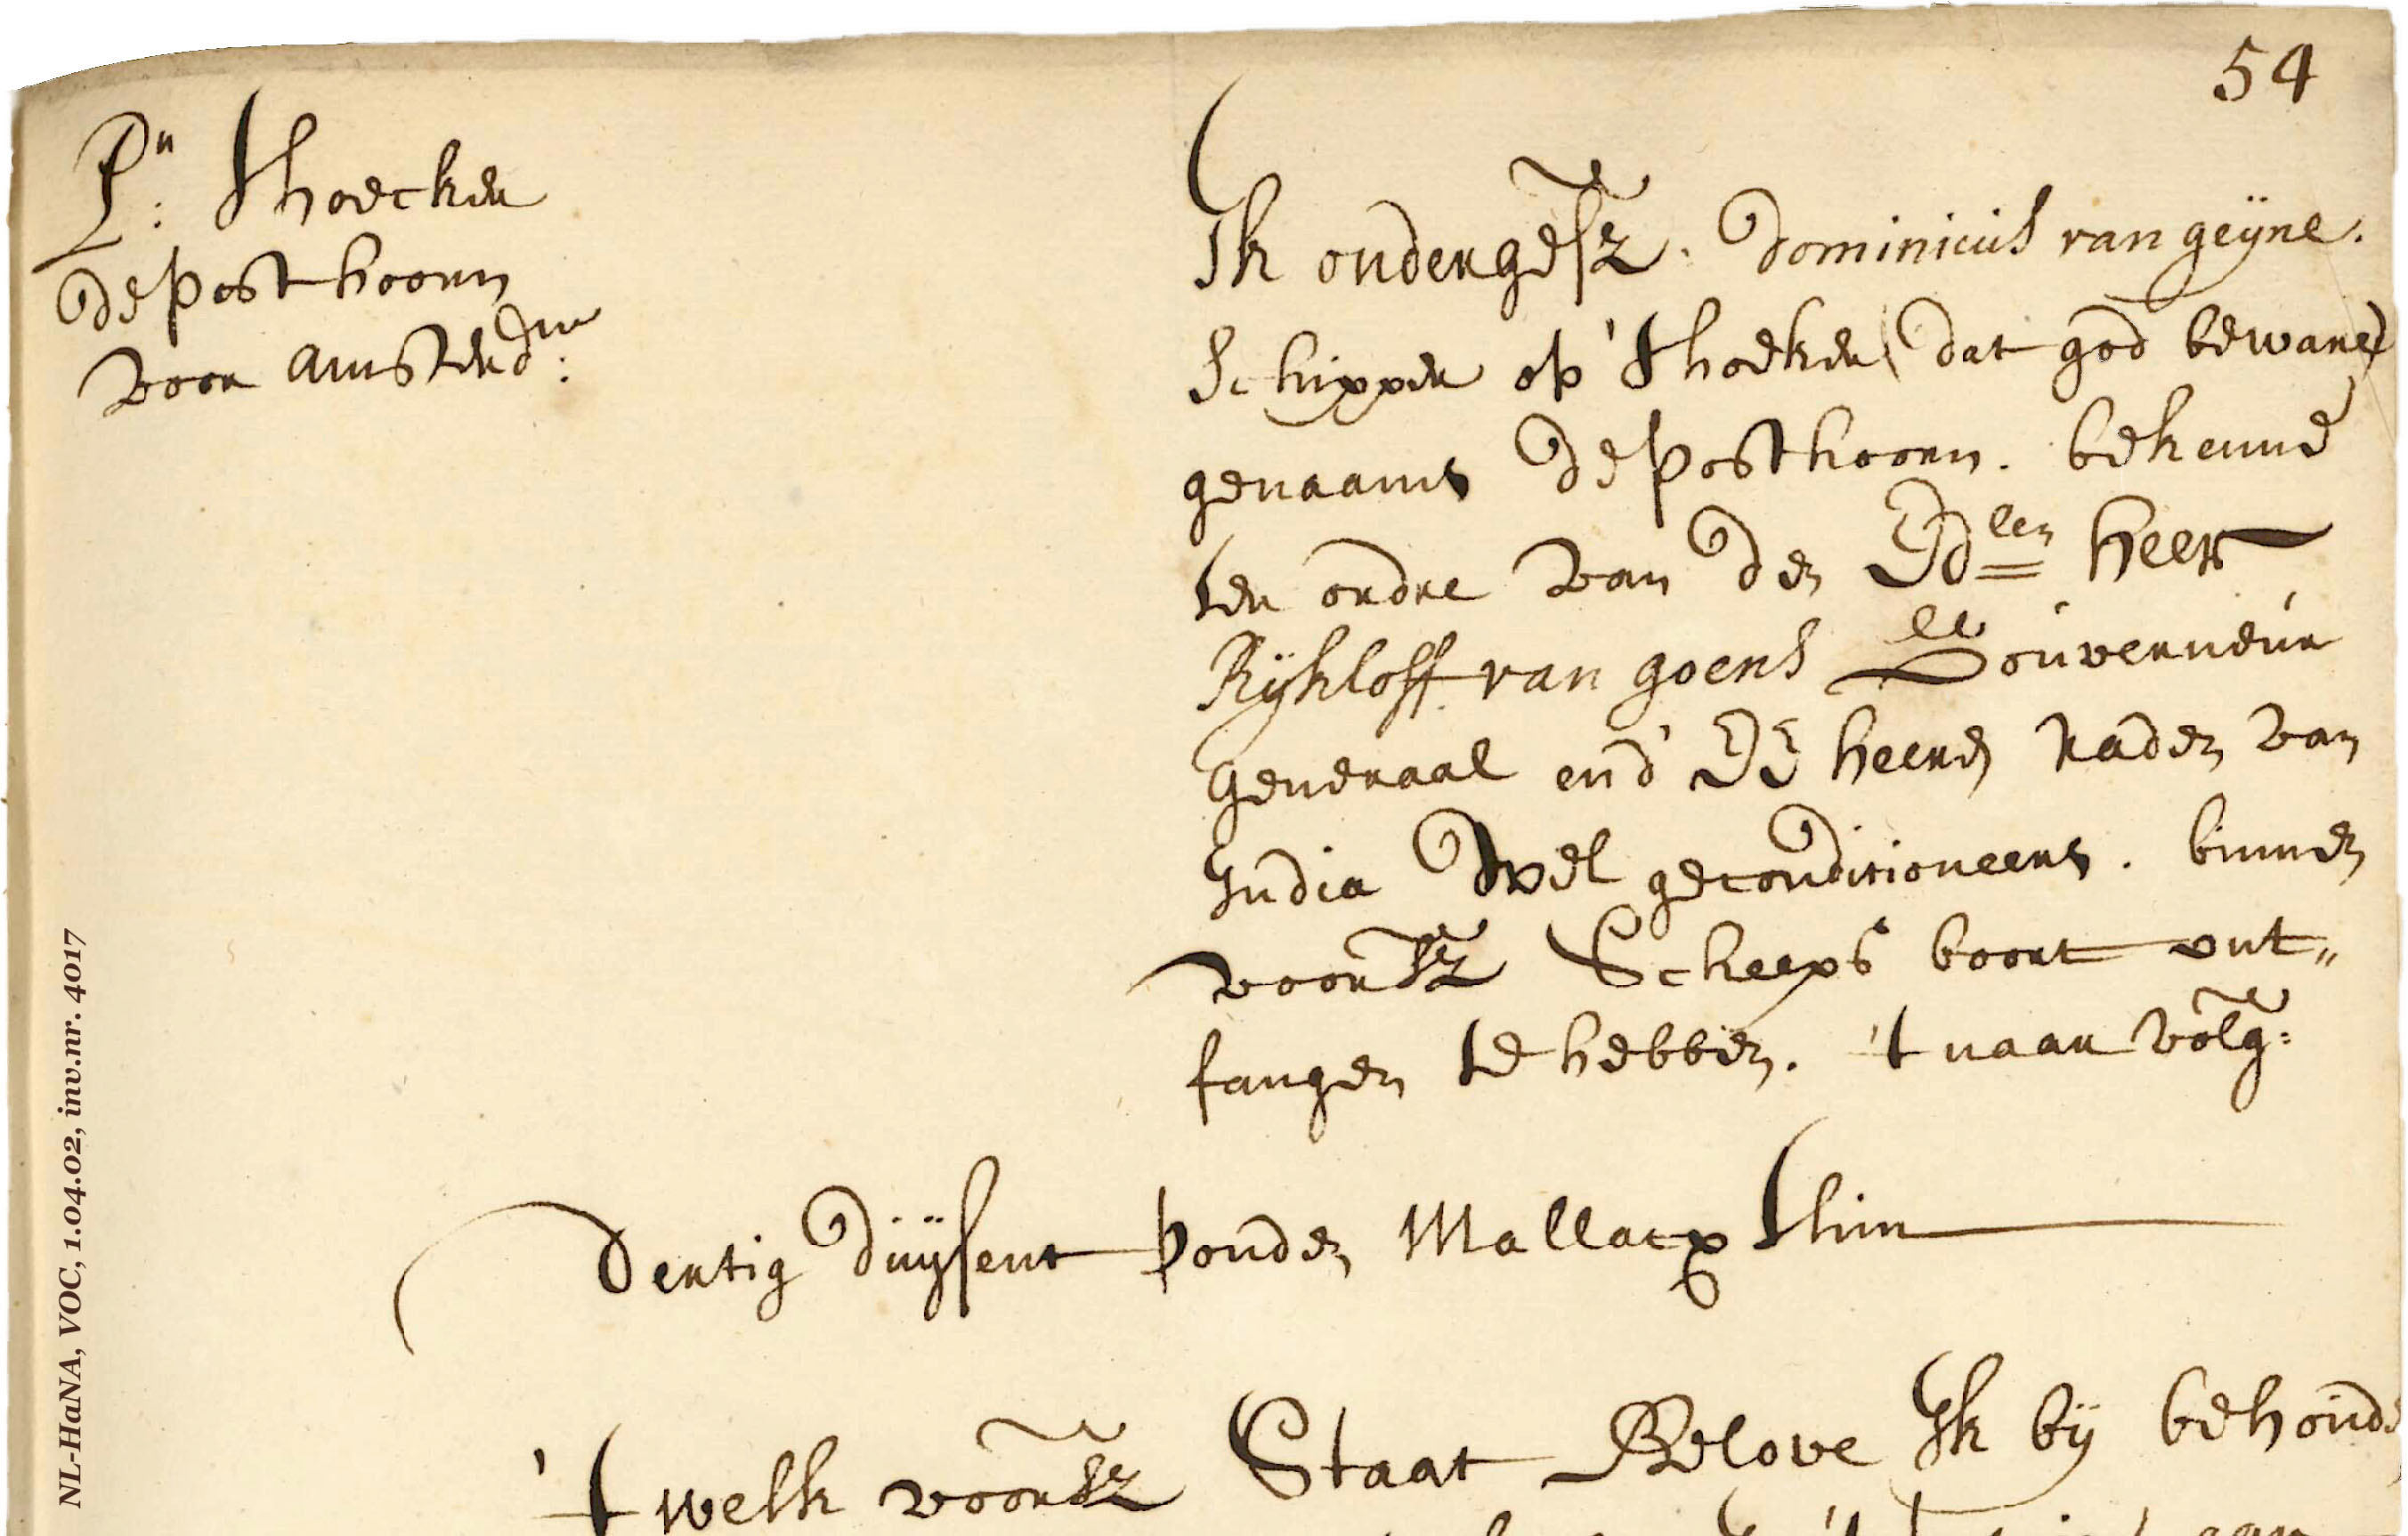 54
Pr: Thoecker
de Posthoorn
voor Amsterdm:
Ik ondergesz. Dominicus van geyne.
Schipper op 't hoeker (dat god beware)
genaamt de Posthoorn. bekenne
ter ordre van den Edlen heer
Rijkloff van goens Gouverneur
Generaal end' EE heeren raden van
India wel geconditioneert. binnen
voorsz Scheeps boort ont„
fangen te hebben. 't naar volg:
Dertig duijsent ponden Mallacx Thin
't welk voorsz Staat Belove Ik bij behoud
NL-HaNA, VOC, 1.04.02, inv.nr. 4017